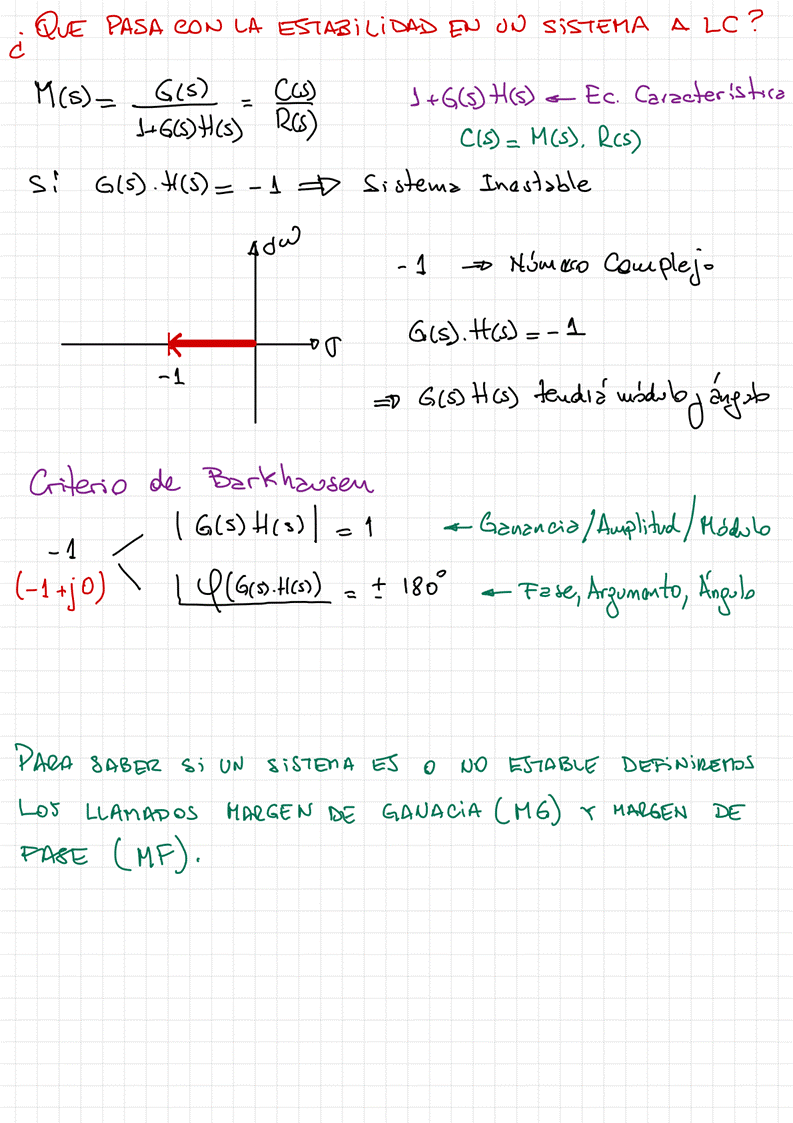 ¿QUE PASA CON LA ESTABILIDAD EN UN SISTEMA A LC?
M(s) = G(s) / 1+G(s)H(s) = C(s) / R(s)
1+G(s)H(s) ← Ec. Característica
C(s) = M(s). R(s)
Si G(s).H(s) = -1 ⇒ Sistema Inestable
jω
-1 ⇒ Número Complejo
σ
G(s).H(s) = -1
-1
⇒ G(s)H(s) tendrá módulo y ángulo
Criterio de Barkhausen
|G(s)H(s)| = 1 ← Ganancia/Amplitud/Módulo
-1
(-1+j0)
φ(G(s).H(s)) = ± 180° ← Fase, Argumento, Ángulo
PARA SABER Si UN SiSTEMA ES O NO ESTABLE DEFiNiREMOS
LOS LLAMADOS MARGEN DE GANACiA (MG) Y MARGEN DE
FASE (MF).